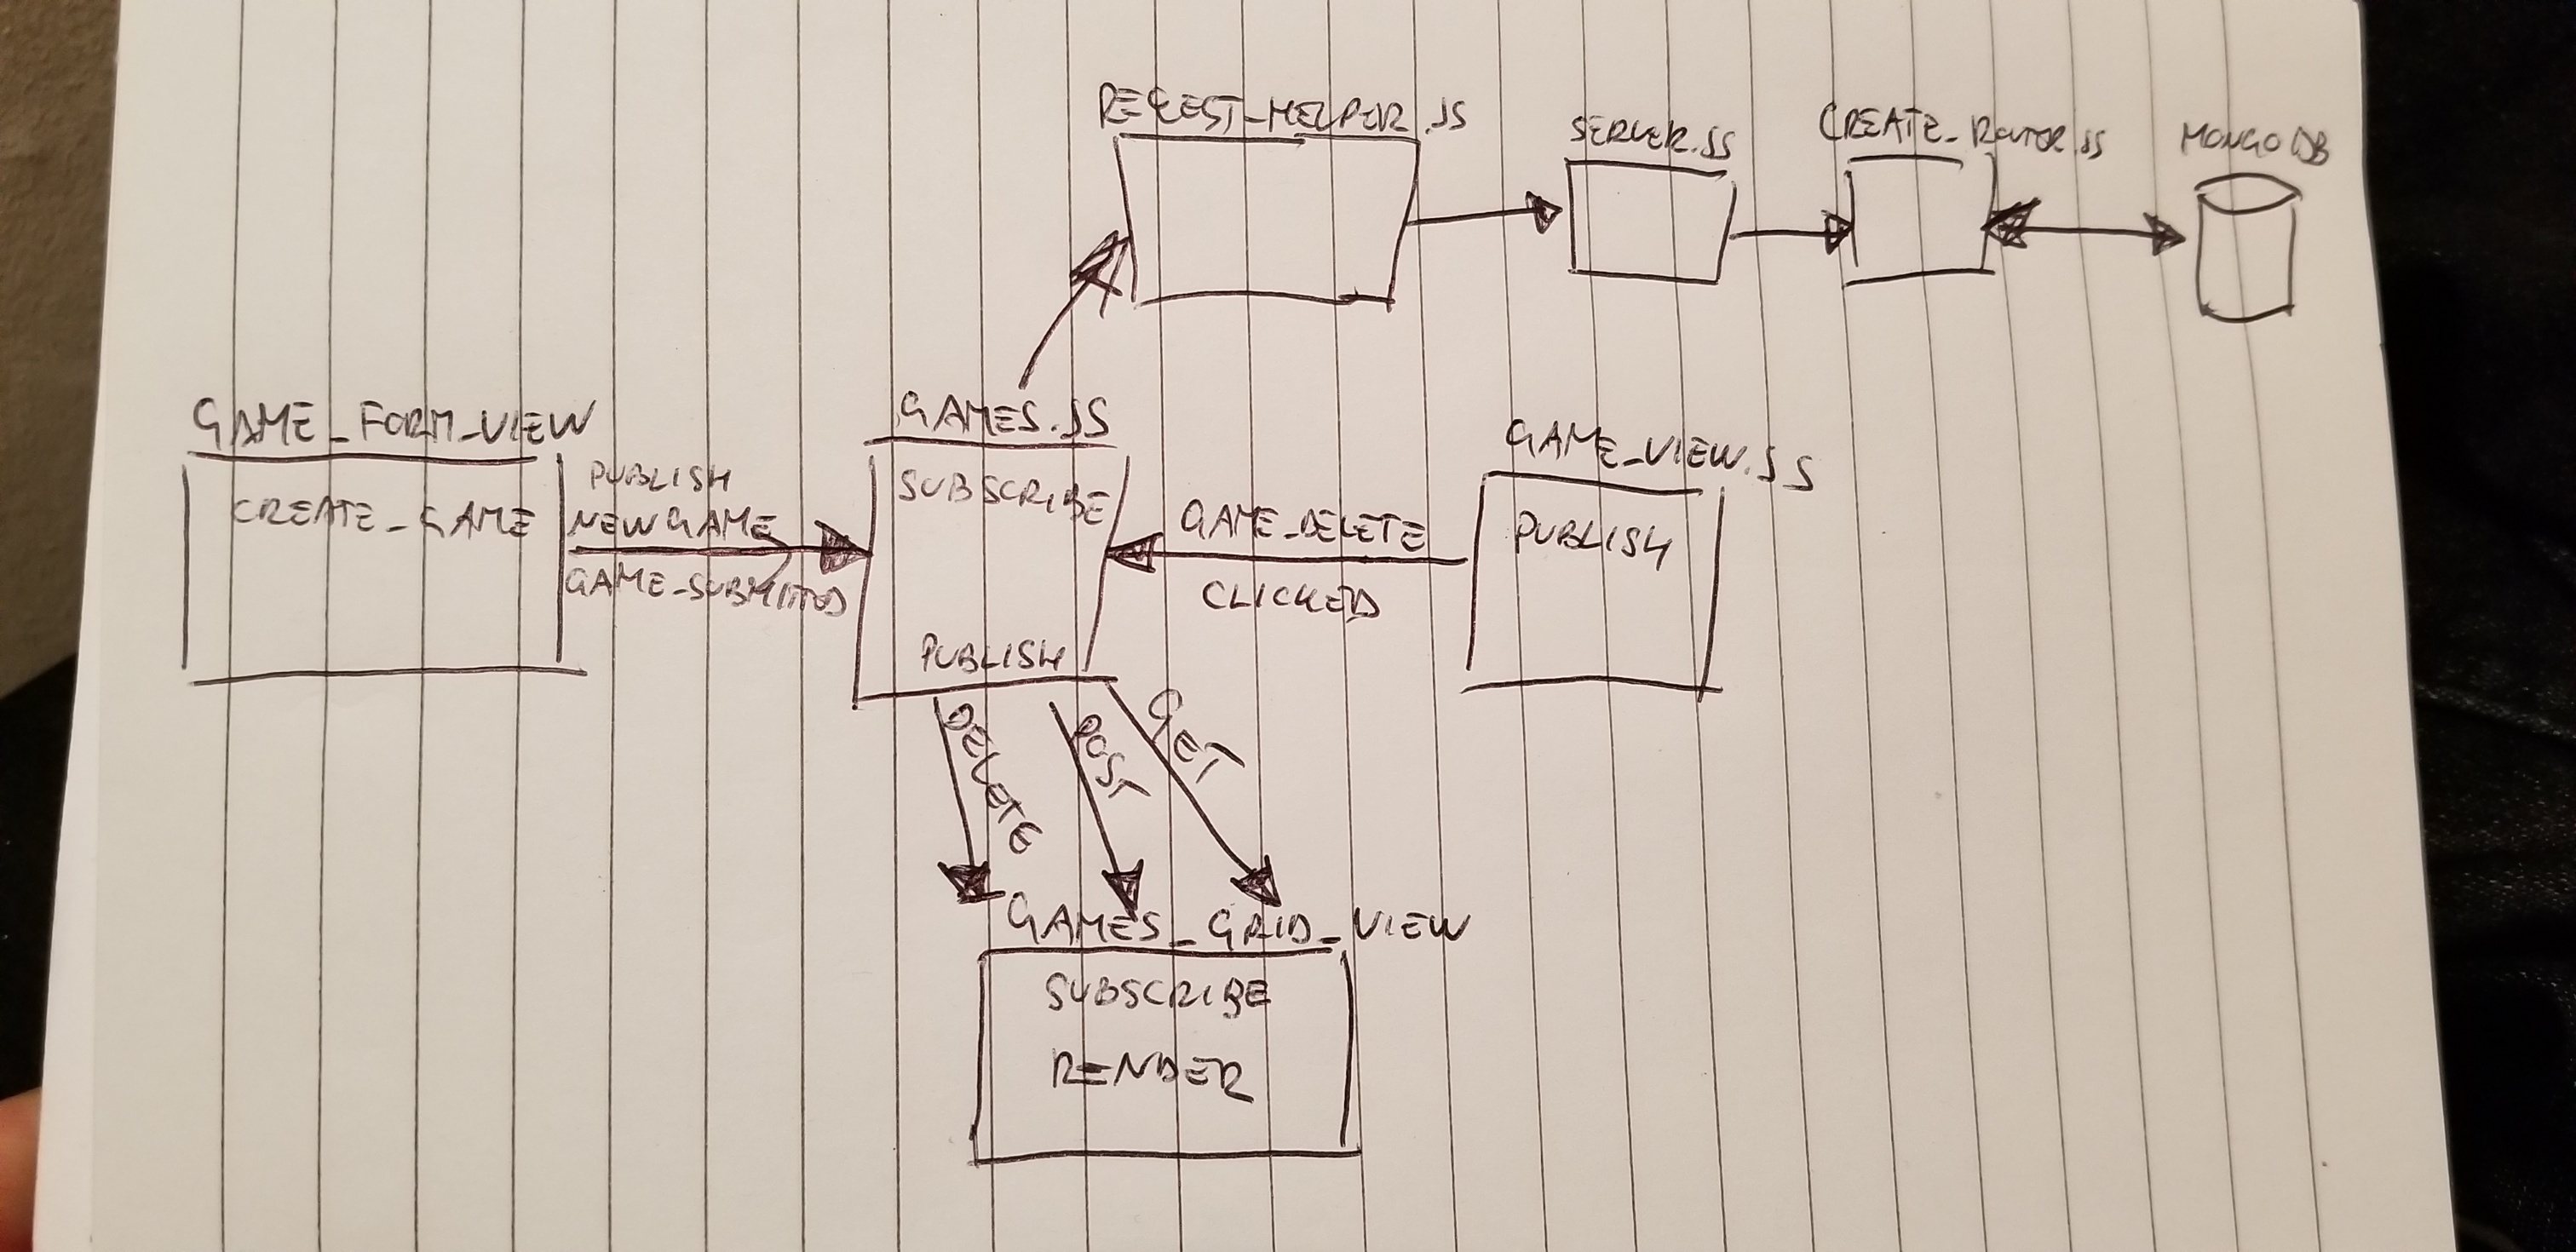 REQEST_HELPER.JS
SERVER.JS
CREATE_ROUTER.JS
MONGO DB
GAME_FORM_VIEW
CREATE_GAME
PUBLISH
NEW GAME
GAME_SUBMITTED
GAMES.JS
SUBSCRIBE
PUBLISH
GAME_DELETE
CLICKED
GAME_VIEW.JS
PUBLISH
DELETE
POST
GET
GAMES_GRID_VIEW
SUBSCRIBE
RENDER